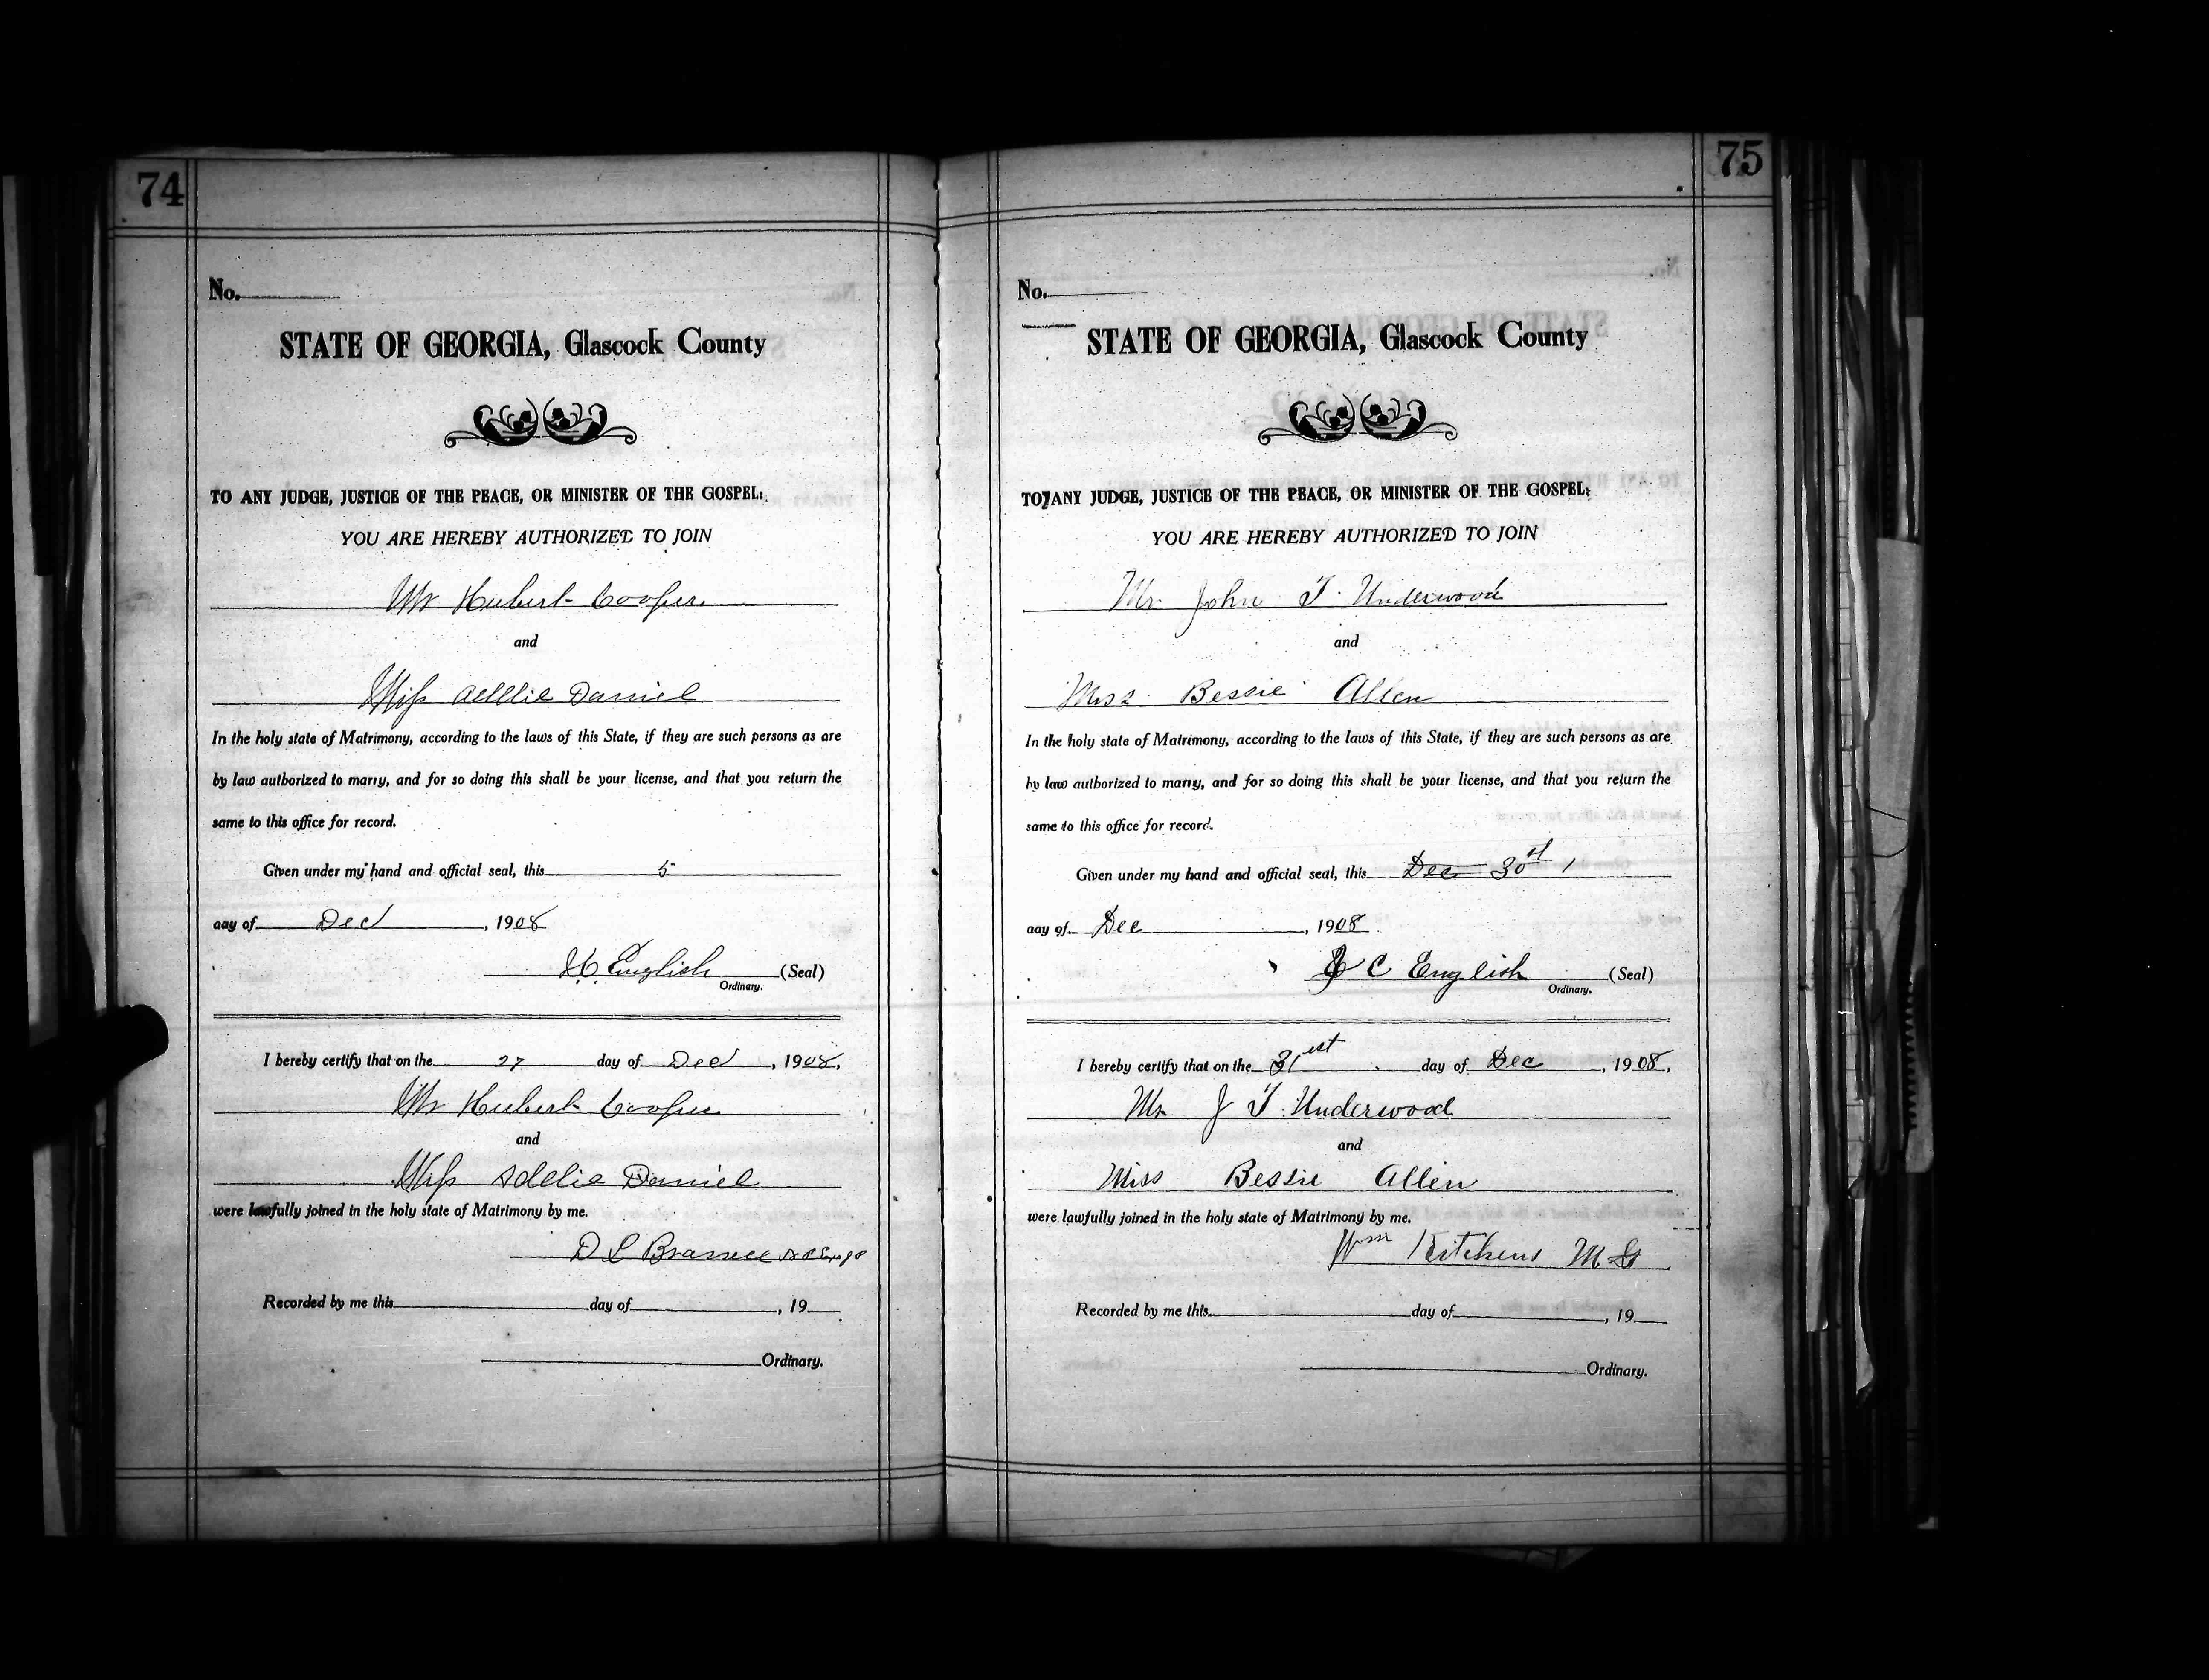 74
No.
STATE OF GEORGIA, Glascock County
TO ANY JUDGE, JUSTICE OF THE PEACE, OR MINISTER OF THE GOSPEL:
YOU ARE HEREBY AUTHORIZED TO JOIN
Mr Hubert Cooper
and
Miss Addlie Daniel
In the holy state of Matrimony, according to the laws of this State, if they are such persons as are
by law authorized to marry, and for so doing this shall be your license, and that you return the
same to this office for record.
Given under my hand and official seal, this 5
day of Dec, 1908
English (Seal)
Ordinary.
I hereby certify that on the 27 day of Dec, 1908,
Mr Hubert Cooper
and
Miss Addlie Daniel
were lawfully joined in the holy state of Matrimony by me.
D L
Recorded by me this day of , 19
Ordinary.
75
No.
STATE OF GEORGIA, Glascock County
TO ANY JUDGE, JUSTICE OF THE PEACE, OR MINISTER OF THE GOSPEL:
YOU ARE HEREBY AUTHORIZED TO JOIN
Mr. John T. Underwood
and
Miss Bessie Allen
In the holy state of Matrimony, according to the laws of this State, if they are such persons as are
by law authorized to marry, and for so doing this shall be your license, and that you return the
same to this office for record.
Given under my hand and official seal, this Dec 30st
day of Dec, 1908
C English (Seal)
Ordinary.
I hereby certify that on the 31st day of Dec, 1908,
Mr J T. Underwood
and
Miss Bessie Allen
were lawfully joined in the holy state of Matrimony by me.
Wm Kitchens M G
Recorded by me this day of , 19
Ordinary.